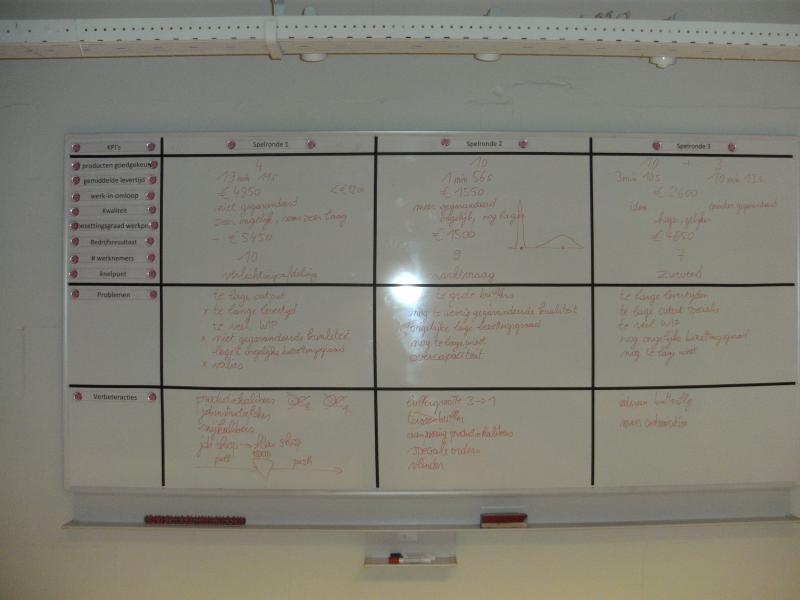 KPI's Spelronde 1 Spelronde 2 Spelronde 3
producten goedgekeurd 4 10 10 + 3
gemiddelde levertijd 19 min 1 min 56s 3min 10s 10 min 13s
werk-in-omloop € 4950 < € 1200 € 1550 € 2600
Kwaliteit niet gegarandeerd meer gegarandeerd idem minder gegarandeerd
bezettingsgraad werkpn zeer ongelijk, soms zeer laag ongelijk, nog lager hoger, gelijker
Bedrijfsresultaat - € 5450 € 1500 € 4650
# werknemers 10 9 7
knelpunt verlichtingsafdeling marktvraag
Problemen
te lage output
x te lange levertijd
te veel WIP
x niet gegarandeerde kwaliteit
lage + ongelijke bezettingsgraad
x verlies
te grote buffers
nog te weinig gegarandeerde kwaliteit
ongelijke lage bezettingsgraad
nog te lage winst
overcapaciteit
te lange levertijden
te lage output specials
te veel WIP
nog ongelijke bezettingsgraad
nog te lage winst
Verbeteracties
job shop → flow shop
pull push
buffergrootte 3→1
tussenbuffer
speciale orders